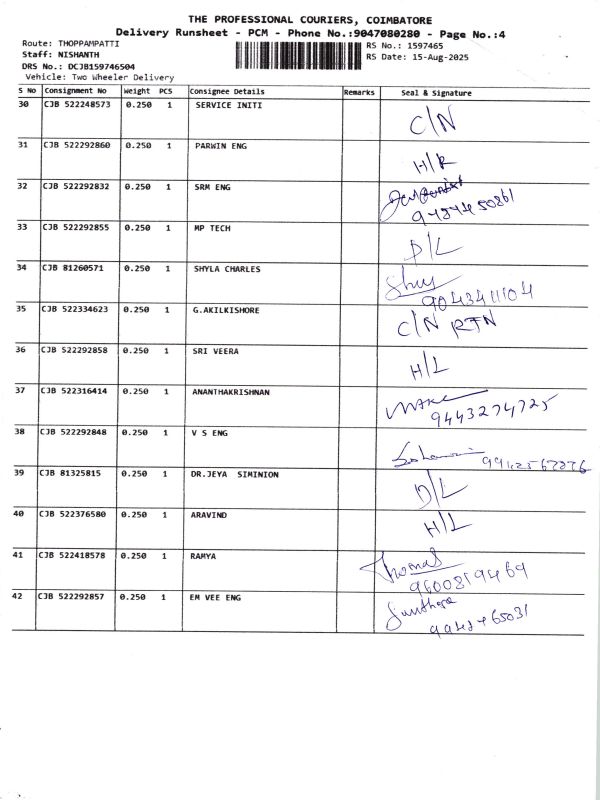 THE PROFESSIONAL COURIERS, COIMBATORE
Delivery Runsheet - PCM - Phone No.:9047080280 - Page No.:4
Route: THOPPAMPATTI
RS No.: 1597465
Staff: NISHANTH
RS Date: 15-Aug-2025
DRS No.: DCJB159746504
Vehicle: Two Wheeler Delivery
S No Consignment No Weight PCS Consignee Details Remarks Seal & Signature
30 CJB 522248573 0.250 1 SERVICE INITI C/N
31 CJB 522292860 0.250 1 PARWIN ENG H/R
32 CJB 522292832 0.250 1 SRM ENG
33 CJB 522292855 0.250 1 MP TECH D/L
34 CJB 81260571 0.250 1 SHYLA CHARLES
9043411104
35 CJB 522334623 0.250 1 G.AKILKISHORE C/N RTN
36 CJB 522292858 0.250 1 SRI VEERA H/L
37 CJB 522316414 0.250 1 ANANTHAKRISHNAN
9443274725
38 CJB 522292848 0.250 1 V S ENG
39 CJB 81325815 0.250 1 DR.JEYA SIMINION D/L
40 CJB 522376580 0.250 1 ARAVIND H/L
41 CJB 522418578 0.250 1 RAMYA Thomas
9600819469
42 CJB 522292857 0.250 1 EM VEE ENG